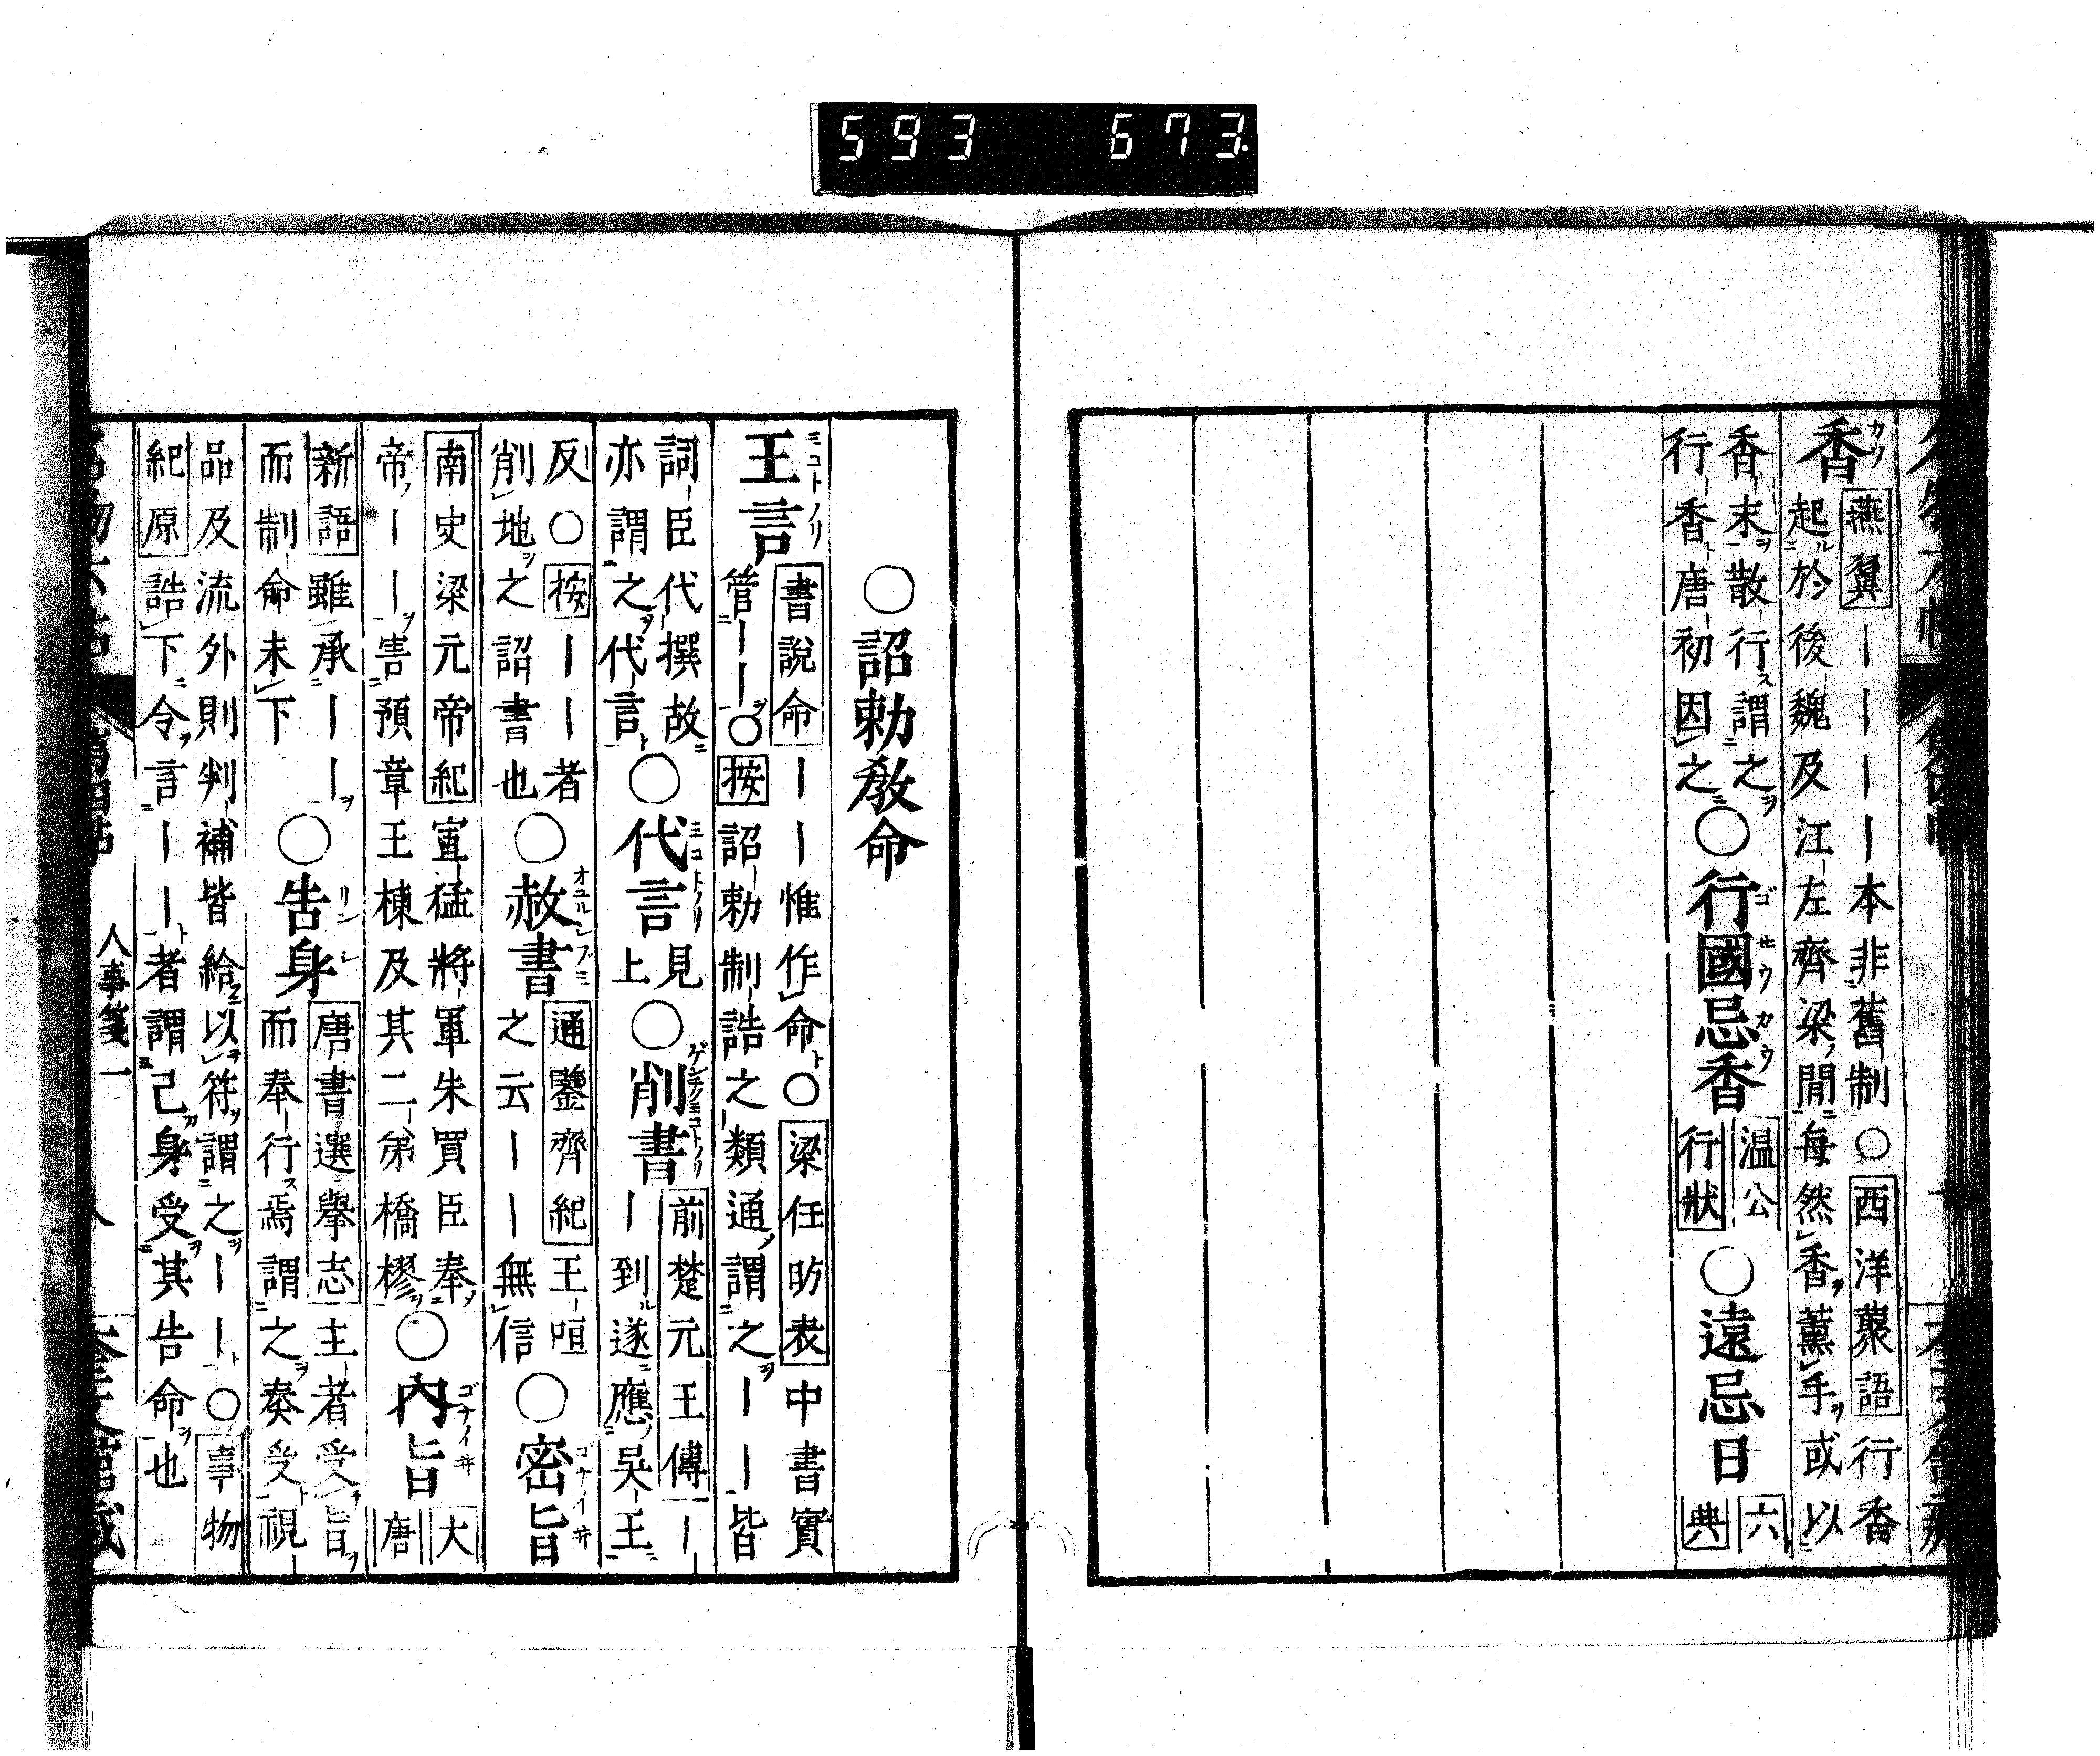 593 673
香 燕翼｜｜｜｜本非舊制〇西洋藂語行香
起於後魏及江左齊梁間每然香薫手或以
香末散行謂之
行香唐初因之
〇行國忌香 温公
行狀
〇遠忌日 六
典
〇詔勅敎命
王言 書說命｜｜惟作命〇梁任昉表中書實
管｜｜〇按詔勅制誥之類通謂之｜｜皆
詞臣代撰故
亦謂之代言
〇代言 見
上
〇削書 前楚元王傳｜
｜到遂應吳王
反〇按｜｜者
削地之詔書也
〇赦書 通鑒齊紀王咺
之云｜｜無信
〇密旨
南史梁元帝紀寘猛將軍朱買臣奉
帝｜｜害預章王棟及其二弟橋樛
〇內旨 大
唐
新語雖承｜｜
而制命未下
〇告身 唐書選擧志主者受旨
而奉行焉謂之奏受視
品及流外則判補皆給以符謂之｜｜〇事物
紀原誥下令言｜｜者謂己身受其告命也
人事箋一